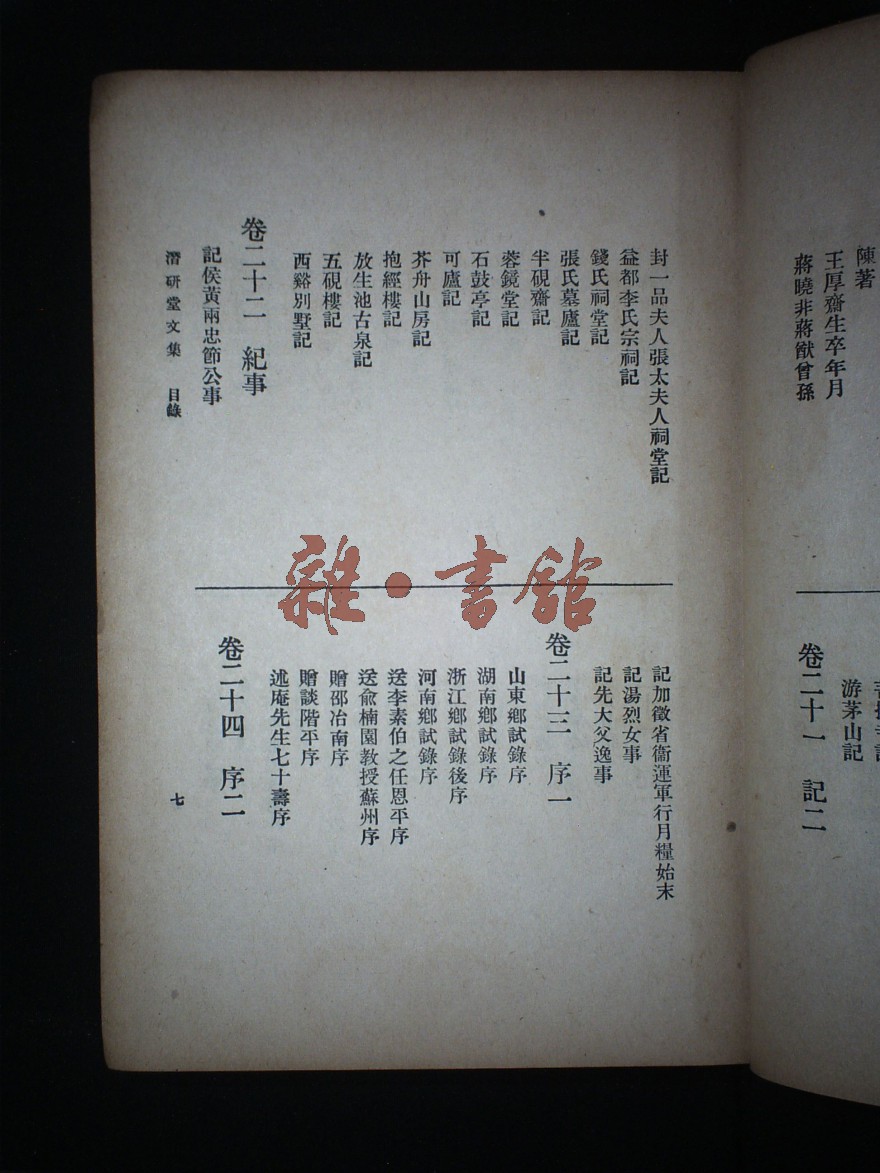 陳著
王厚齋生卒年月
蔣曉非蔣猷曾孫
卷二十一 記二
游茅山記
封一品夫人張太夫人祠堂記
益都李氏宗祠記
錢氏祠堂記
張氏墓廬記
半硯齋記
蓉鏡堂記
石鼓亭記
可廬記
芥舟山房記
抱經樓記
放生池古泉記
五硯樓記
西谿別墅記
卷二十二 紀事
記侯黃兩忠節公事
記加徵省衞運軍行月糧始末
記湯烈女事
記先大父逸事
卷二十三 序一
山東鄉試錄序
湖南鄉試錄序
浙江鄉試錄後序
河南鄉試錄序
送李素伯之任恩平序
送兪楠園教授蘇州序
贈邵冶南序
贈談階平序
述庵先生七十壽序
卷二十四 序二
潛研堂文集 目錄
七
雜·書館